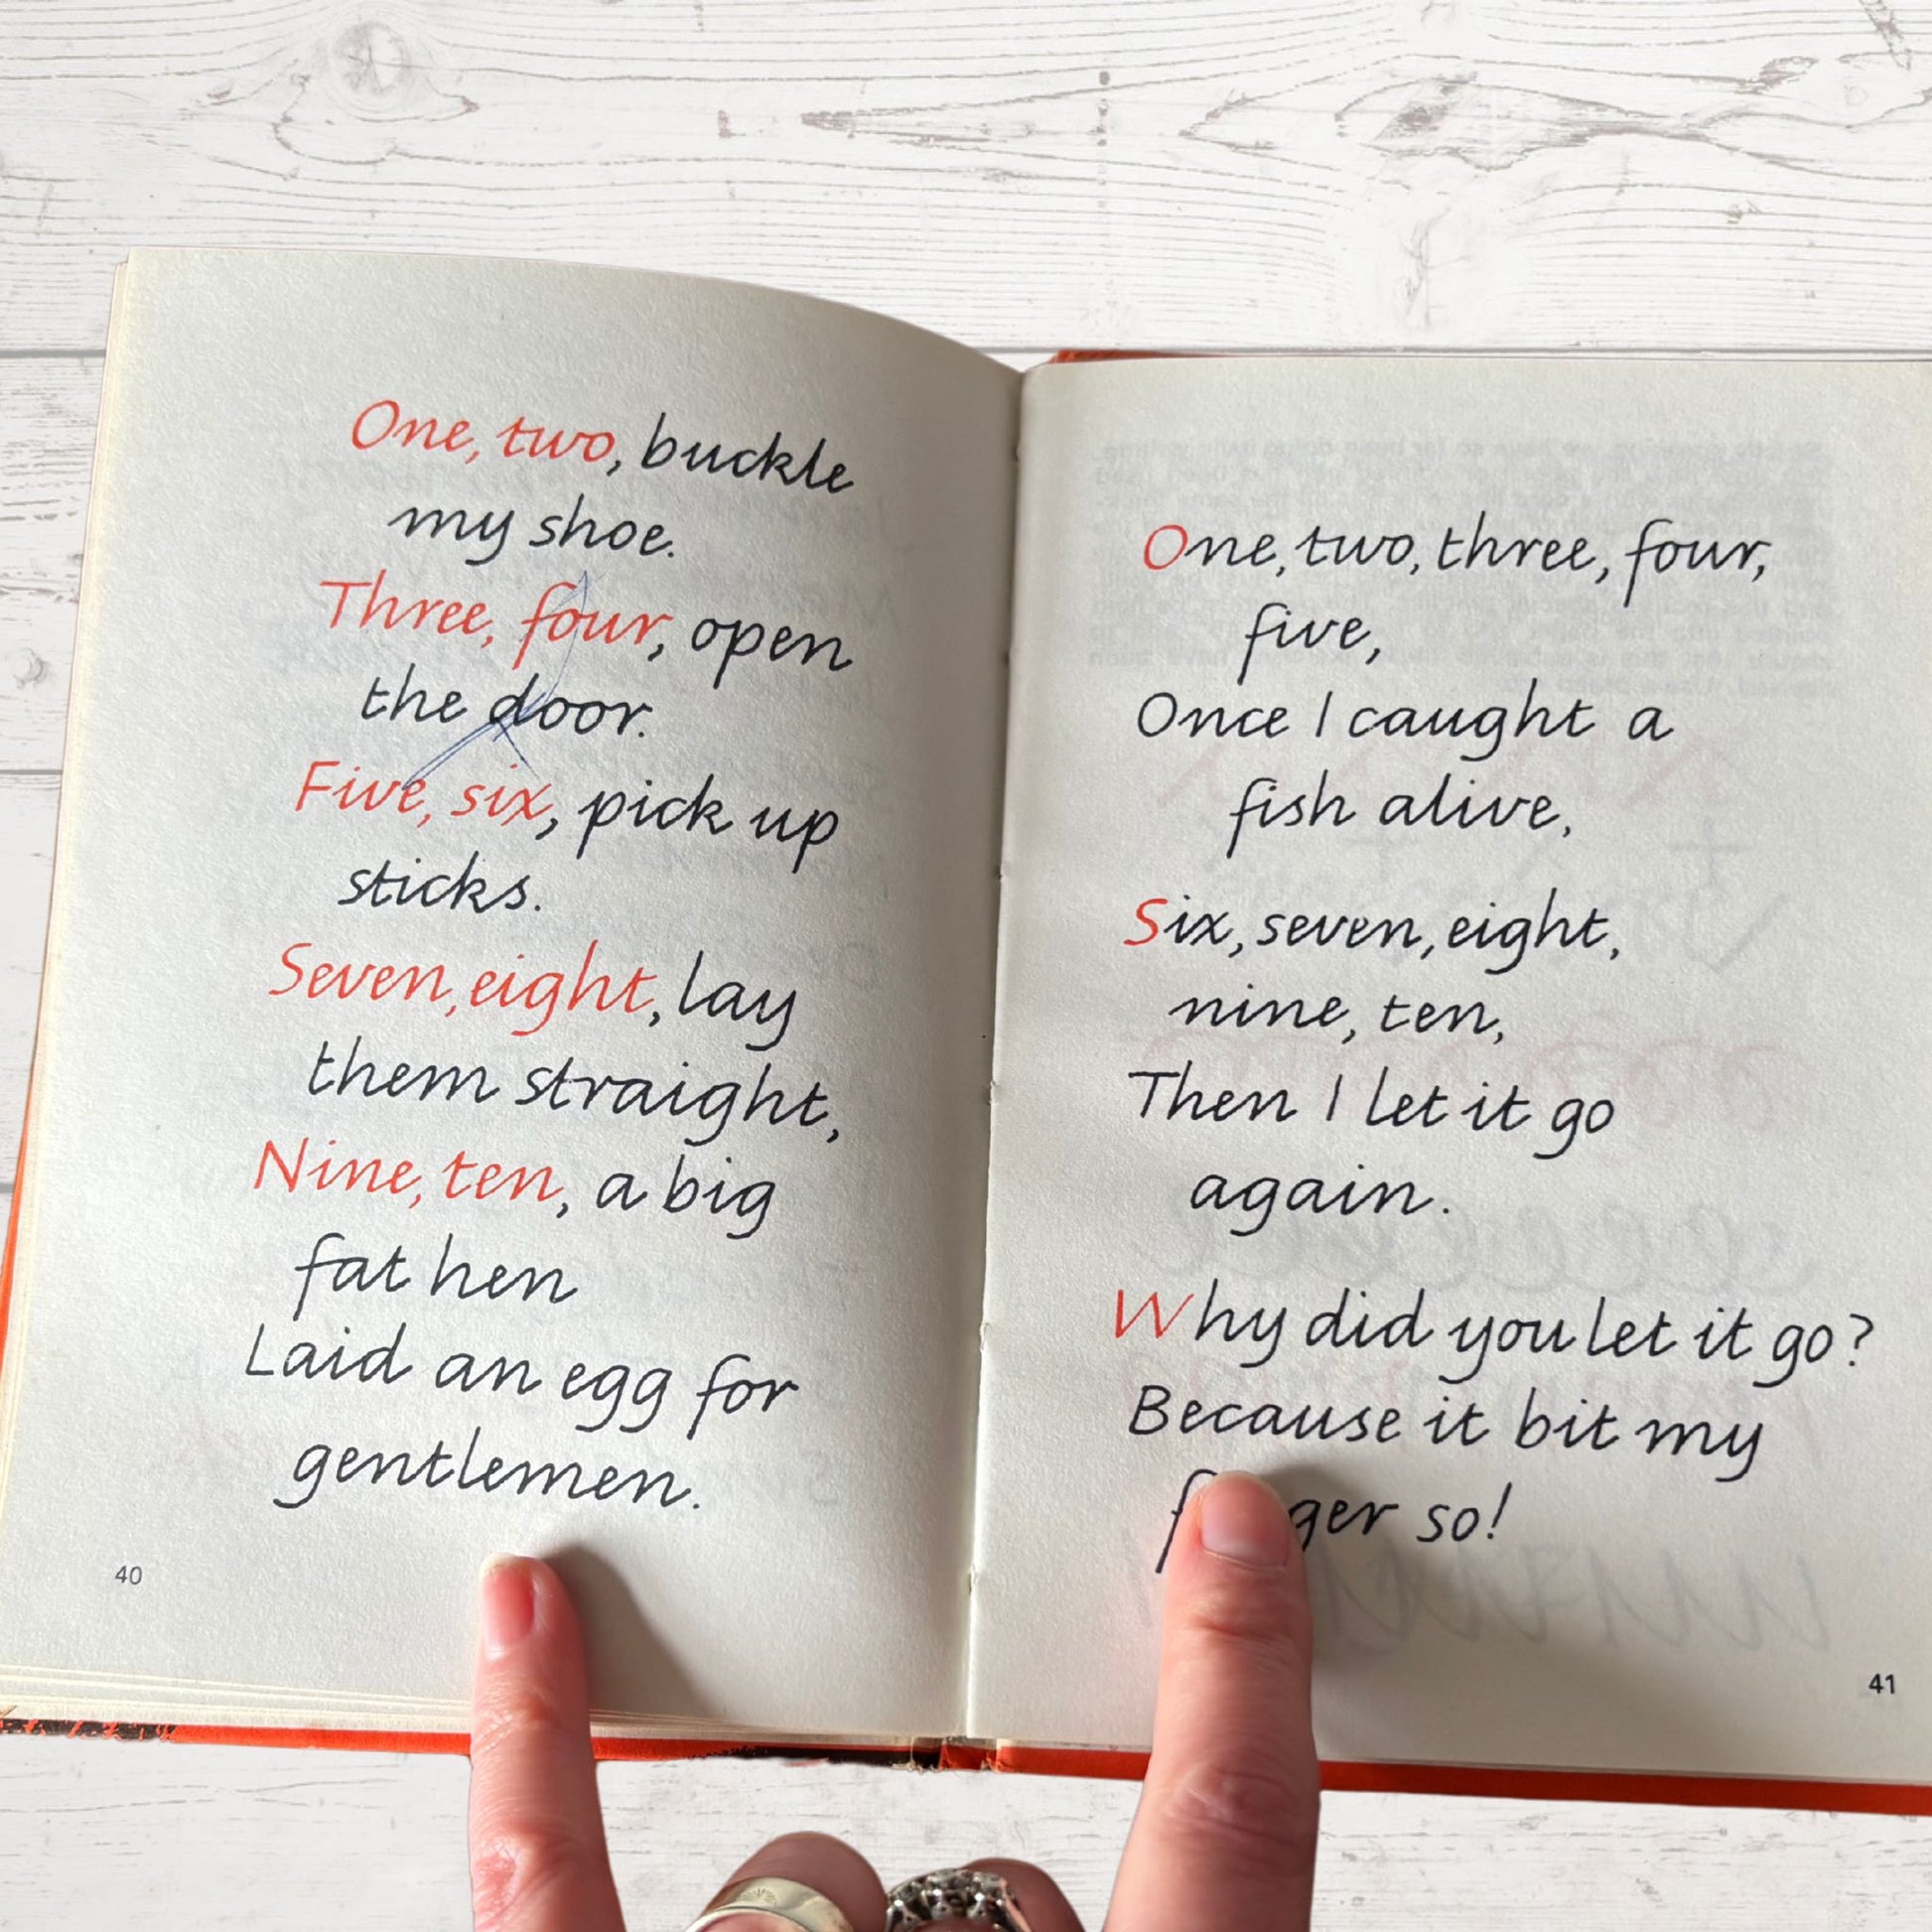 One, two, buckle
my shoe.
Three, four, open
the door.
Five, six, pick up
sticks.
Seven, eight, lay
them straight,
Nine, ten, a big
fat hen
Laid an egg for
gentlemen.
40
One, two, three, four,
five,
Once I caught a
fish alive,
Six, seven, eight,
nine, ten,
Then I let it go
again.
Why did you let it go?
Because it bit my
so!
41